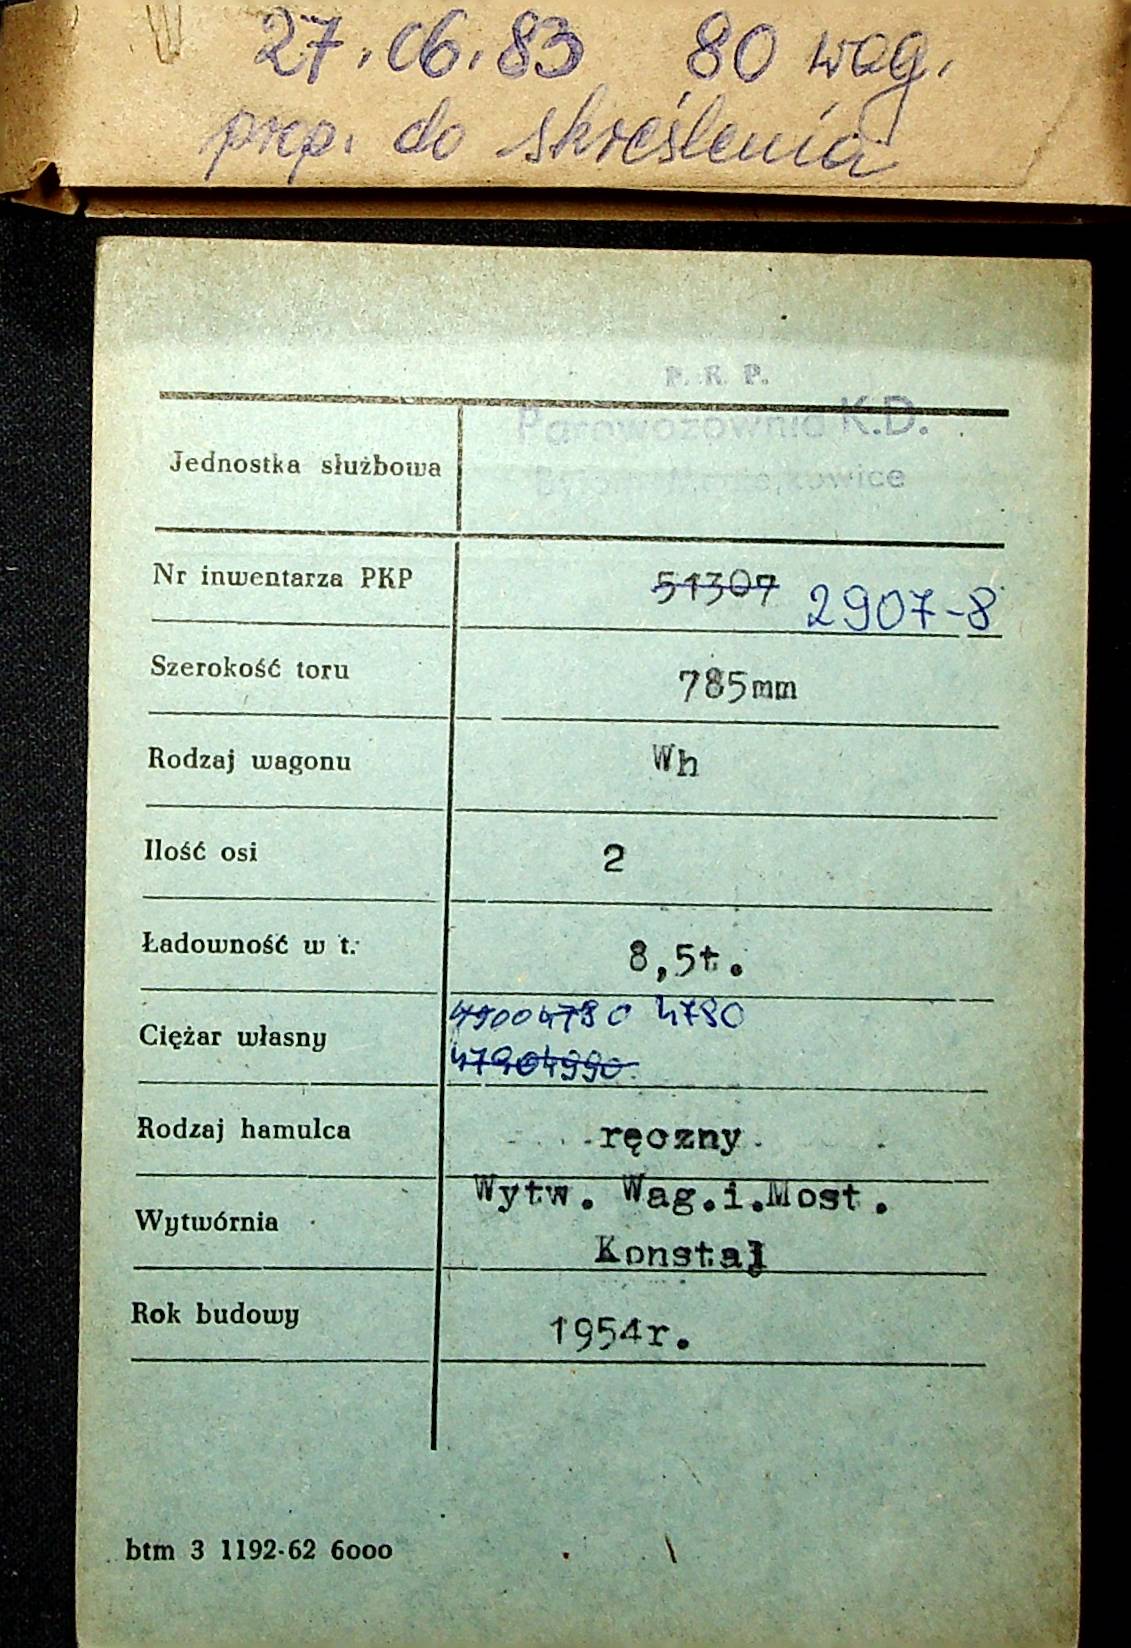 27.06.83 80 wag.
prop. do skreślenia
P. K. P.
Parowozownia K.D.
Jednostka służbowa
Nr inwentarza PKP 51307 2907-8
Szerokość toru 785mm
Rodzaj wagonu Wh
Ilość osi 2
Ładowność w t. 8,5t.
4900 4780 4780
Ciężar własny
4790 4990
Rodzaj hamulca ręczny
Wytw. Wag.i.Most.
Wytwórnia
Konstal
Rok budowy 1954r.
btm 3 1192-62 6000